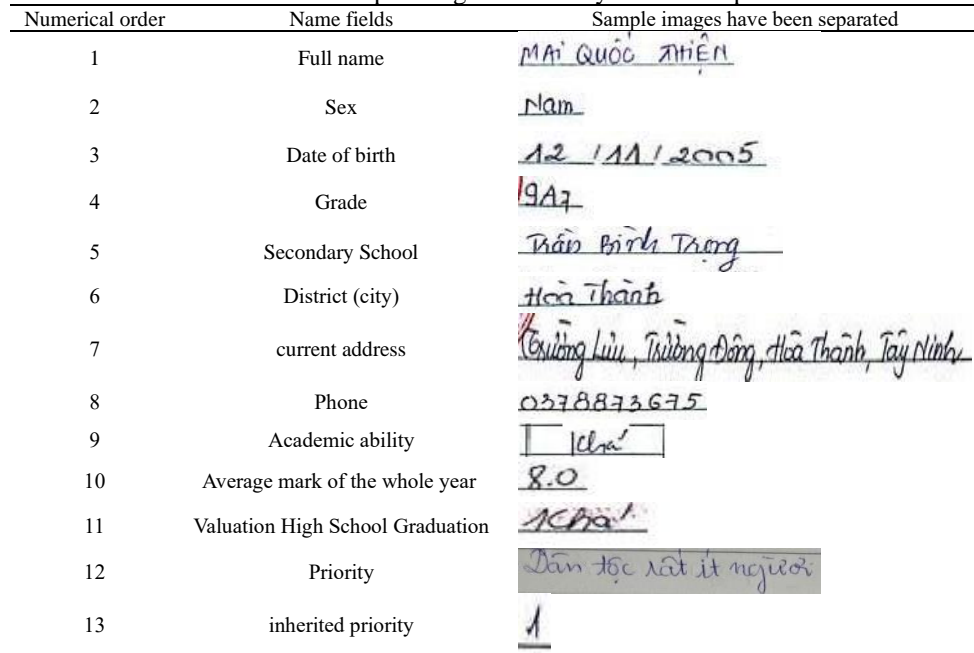 Numerical order Name fields Sample images have been separated
1 Full name MAi QUỐC THIỆN
2 Sex Nam
3 Date of birth 12 / 11 / 2005
4 Grade 9A7
5 Secondary School Trần Bình Trọng
6 District (city) Hoà Thành
7 current address Trường Lưu, Trường Đông, Hoà Thành, Tây Ninh
8 Phone 0378873675
9 Academic ability Khá
10 Average mark of the whole year 8.0
11 Valuation High School Graduation Khá
12 Priority Dân tộc rất ít người
13 inherited priority 1